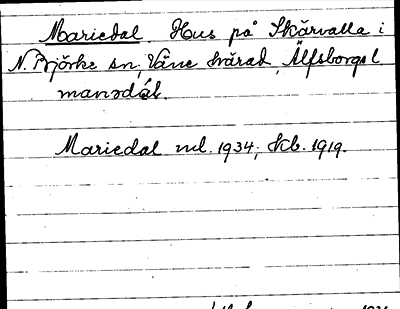 Mariedal Hus på Skärvalla i
N. Björke sn, Väne härad, Älfsborgs l.
manədɑ́l.
Mariedal ml. 1934; kb. 1919.